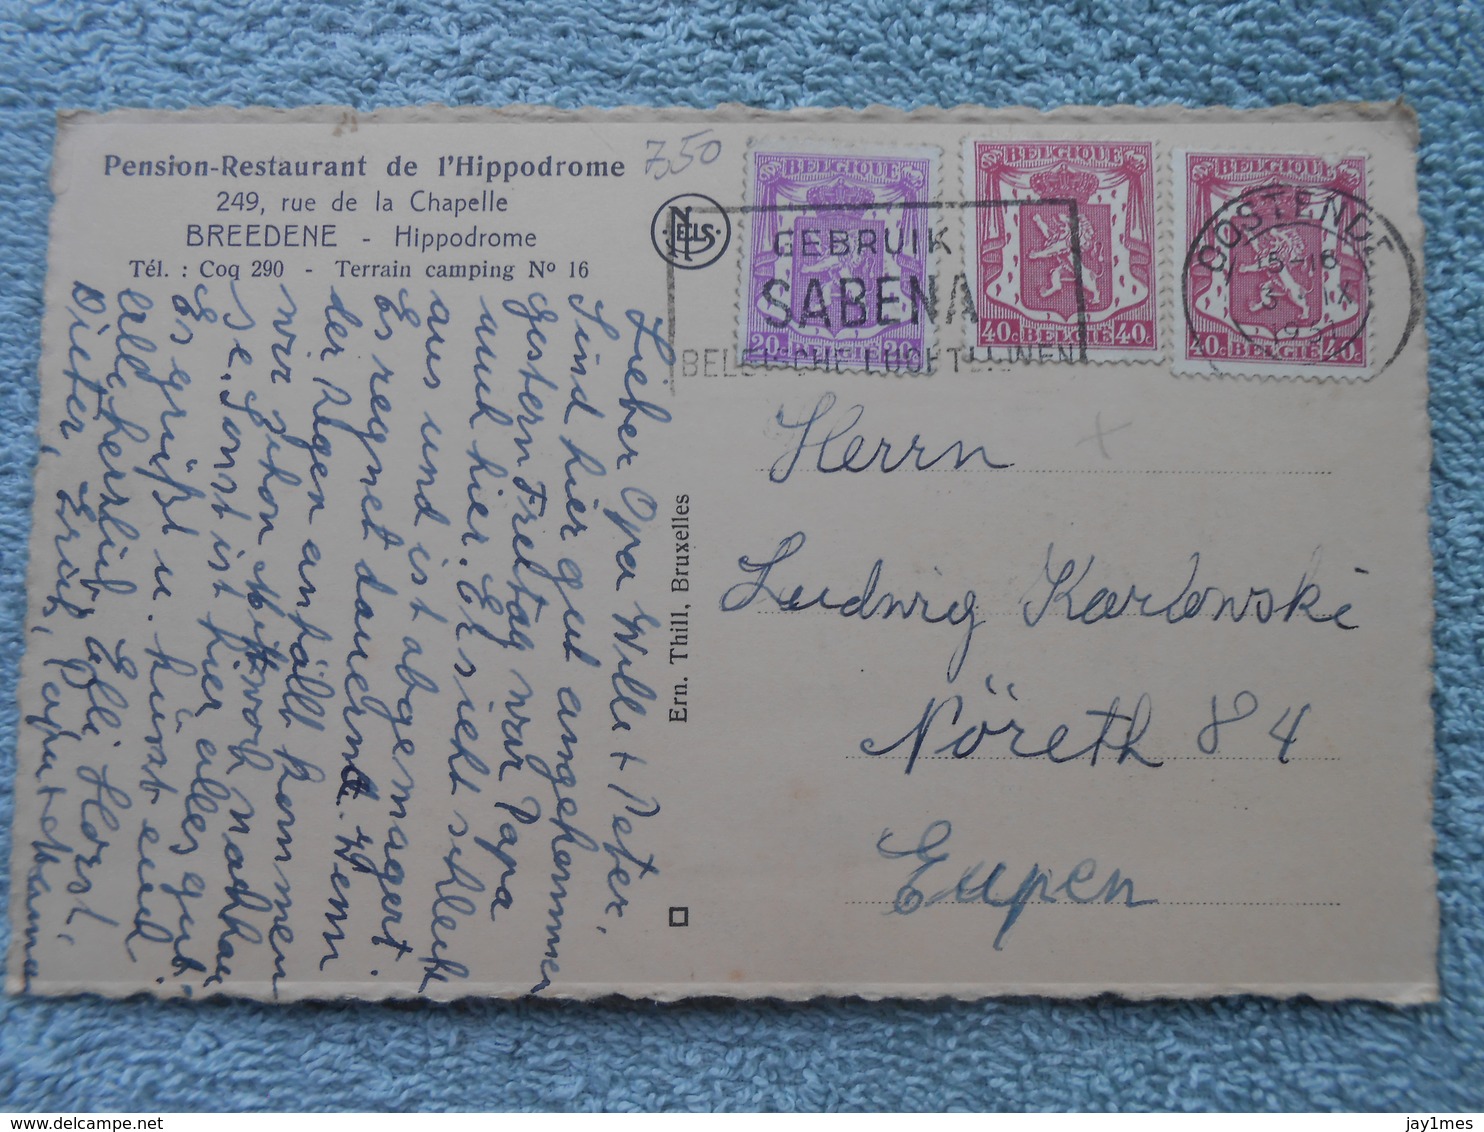 Pension-Restaurant de l'Hippodrome
249, rue de la Chapelle
BREEDENE - Hippodrome
Tél. : Coq 290 - Terrain camping Nº 16
750
NELS
BELGIQUE
20c BELGIE 20c
BELGIQUE
40c BELGIE 40c
BELGIQUE
40c BELGIE 40c
GEBRUIK
SABENA
BELGISCHE LUCHTLIJNEN
OOSTENDE
15-16
IX
1951
Lieber Opa Willi + Peter,
Sind hier gut angekommen
gestern Freitag war Papa
auch hier. Er sieht schlecht
aus und ist abgemagert.
Es regnet dauernd. Wenn
der Regen anhält kommen
wir schon Mittwoch nachhau
se. Sonst ist hier alles gut.
Es grüßt u. küsst euch
alle herzlich Elfi Horst,
Dieter, Erich, Papa + Mama
Ern. Thill, Bruxelles
Herrn
Ludwig Karlowski
Nöreth 84
Eupen
jay1mes